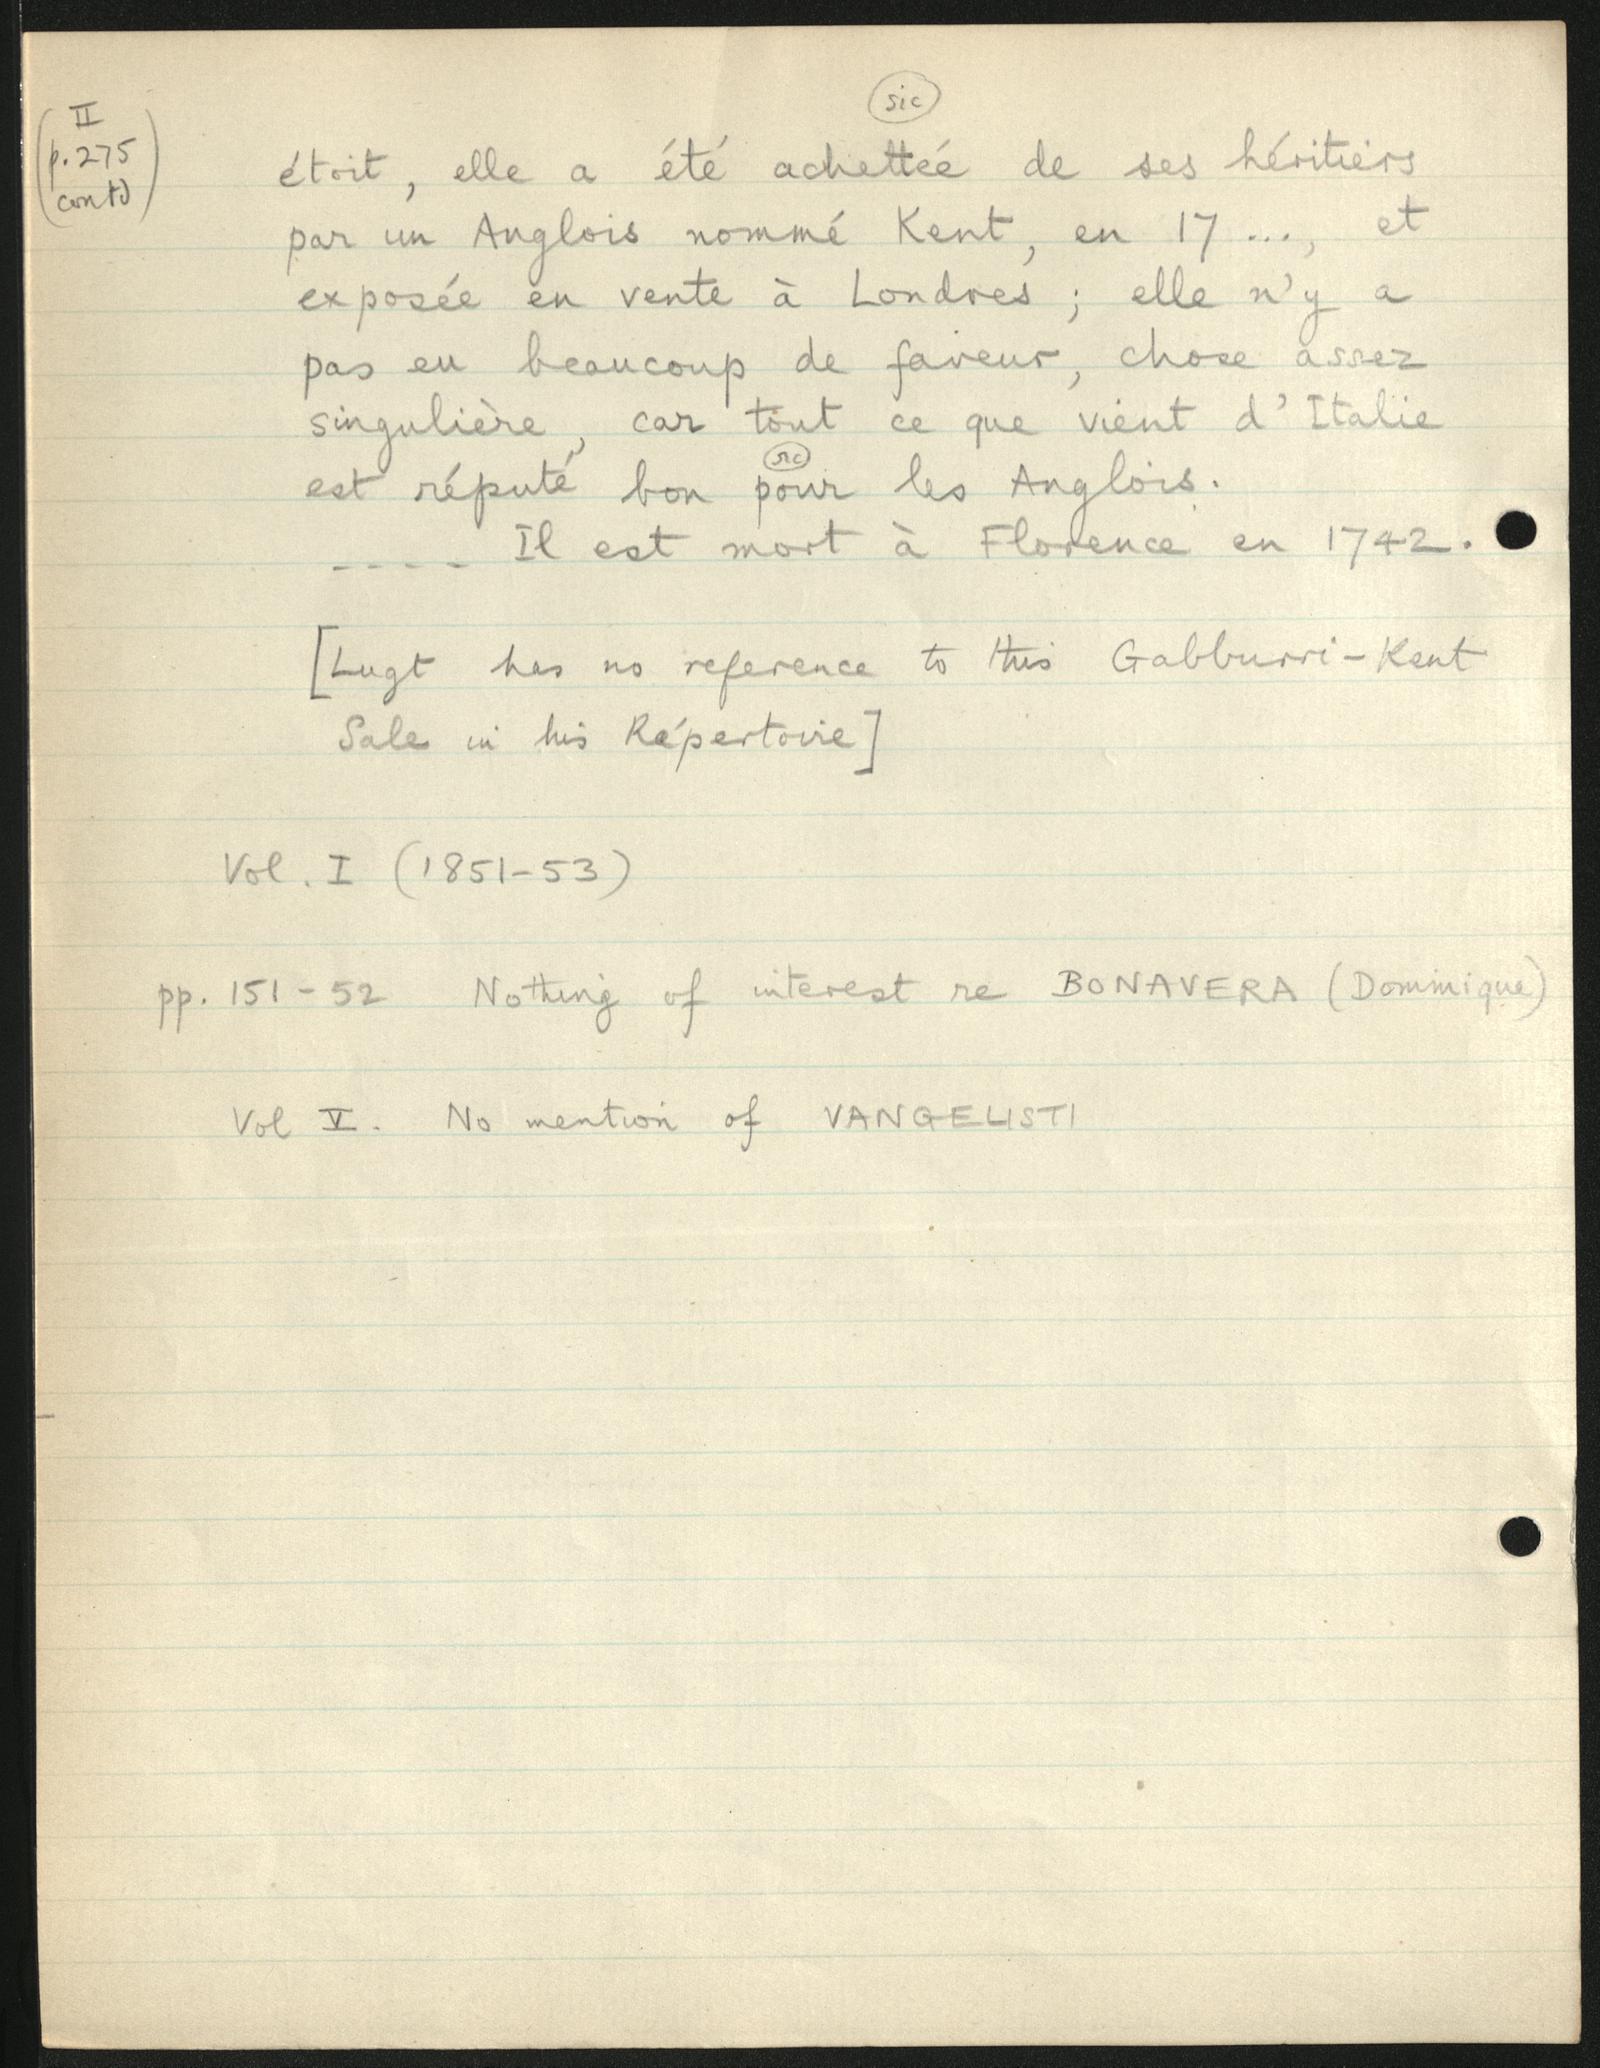 sic
(II
p. 275
contd)
étoit, elle a été achettée de ses héritiers
par un Anglois nommé Kent, en 17 ..., et
exposée en vente à Londres ; elle n'y a
pas eu beaucoup de faveur, chose assez
singulière, car tout ce que vient d'Italie
sic
est réputé bon pour les Anglois.
---- Il est mort à Florence en 1742.
[Lugt has no reference to this Gabburri-Kent
Sale in his Répertoire]
Vol. I (1851-53)
pp. 151-52 Nothing of interest re BONAVERA (Dominique)
Vol V. No mention of VANGELISTI